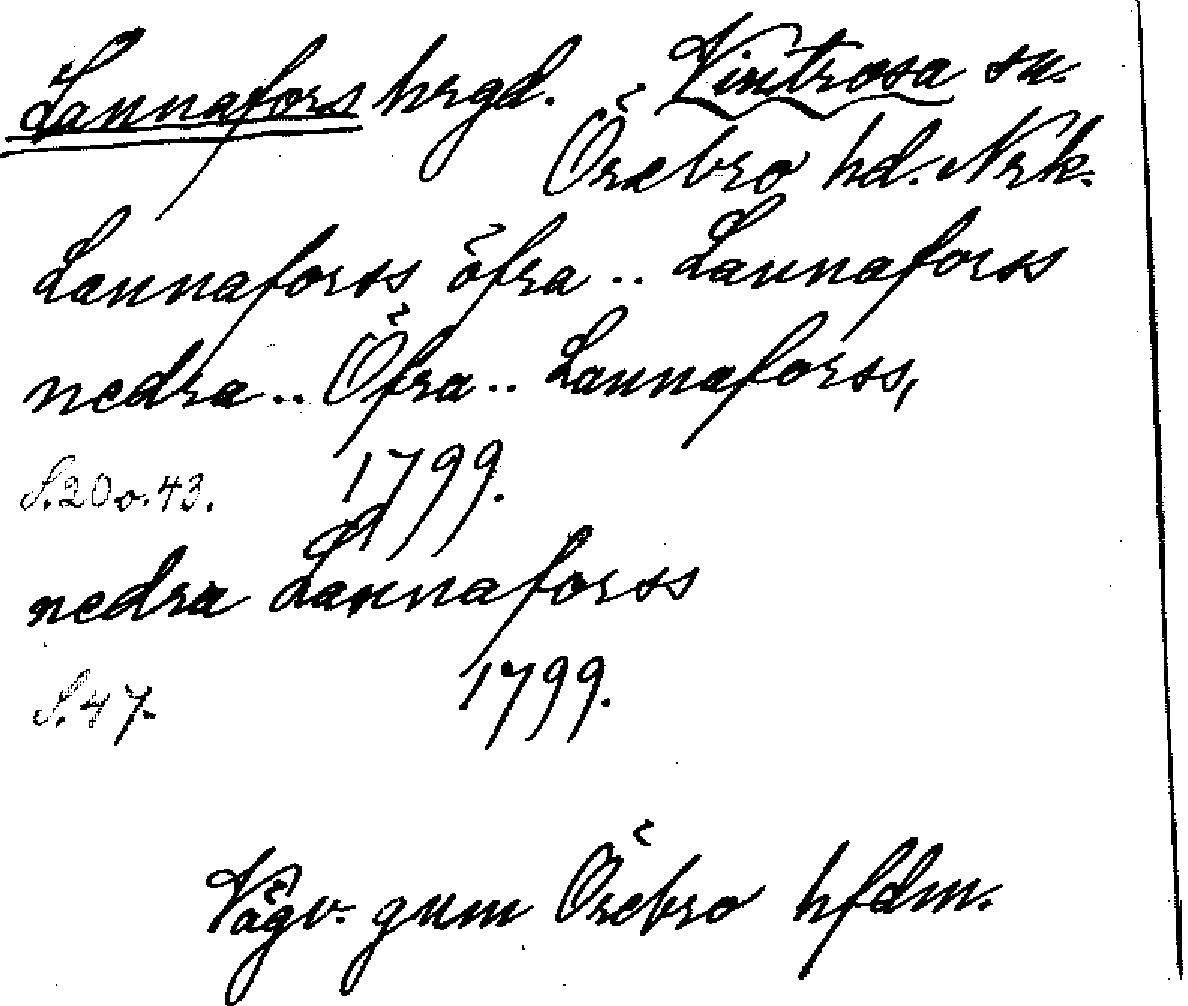 Lannafors hrgd. Vintrosa sn.
Örebro hd. Nrk.
Lannaforss öfra.. Lannaforss
nedra.. Öfra.. Lannaforss,
S. 20 o. 43. 1799.
nedra Lannaforss
S. 47. 1799.
Vägv. gnm Örebro hfdm.